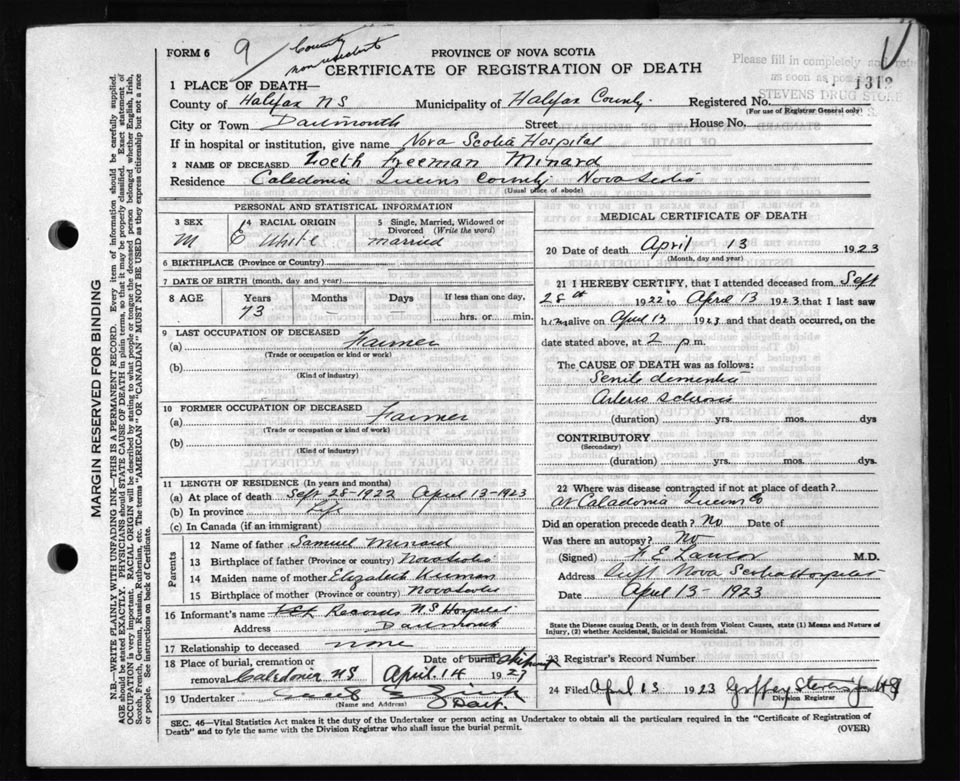 FORM 6
9
County
non resident
PROVINCE OF NOVA SCOTIA
CERTIFICATE OF REGISTRATION OF DEATH
Please fill in completely
as soon as
1312
STEVENS DRUG STORE
1 PLACE OF DEATH—
County of Halifax NS Municipality of Halifax County. Registered No.
(For use of Registrar General only)
City or Town Dartmouth Street House No.
If in hospital or institution, give name Nova Scotia Hospital
2 NAME OF DECEASED Zoeth Freeman Minard
Residence Caledonia Queens County Nova Scotia
(Usual place of abode)
PERSONAL AND STATISTICAL INFORMATION
3 SEX M
4 RACIAL ORIGIN E White
5 Single, Married, Widowed or Divorced (Write the word) married
6 BIRTHPLACE (Province or Country)
7 DATE OF BIRTH (month, day and year)
8 AGE Years Months Days If less than one day,
73 — — hrs. or min.
9 LAST OCCUPATION OF DECEASED
(a) Farmer
(Trade or occupation or kind of work)
(b)
(Kind of industry)
10 FORMER OCCUPATION OF DECEASED
(a) Farmer
(Trade or occupation or kind of work)
(b)
(Kind of industry)
11 LENGTH OF RESIDENCE (In years and months)
(a) At place of death Sept 28-1922 April 13-1923
(b) In province Life
(c) In Canada (if an immigrant)
Parents
12 Name of father Samuel Minard
13 Birthplace of father (Province or country) Nova Scotia
14 Maiden name of mother Elizabeth
15 Birthplace of mother (Province or country) Nova Scotia
16 Informant's name Records N.S Hospital
Address Dartmouth
17 Relationship to deceased none
18 Place of burial, cremation or Date of burial
removal Caledonia NS April 14 1923
19 Undertaker
(Name and Address) Dart.
MEDICAL CERTIFICATE OF DEATH
20 Date of death April 13 1923
(Month, day and year)
21 I HEREBY CERTIFY, that I attended deceased from Sept
28th 1922 to April 13 1923 that I last saw
him alive on April 13 1923 and that death occurred, on the
date stated above, at 2 p.m.
The CAUSE OF DEATH was as follows:
Senile dementia
Arterio sclerosis
(duration) yrs. mos. dys
CONTRIBUTORY
(Secondary)
(duration) yrs. mos. dys
22 Where was disease contracted if not at place of death?
at Caladonia Queens Co
Did an operation precede death? No Date of
Was there an autopsy? No
(Signed) F E Lawlor M.D.
Address Supt Nova Scotia Hospital
Date April 13-1923
State the Disease causing Death, or in death from Violent Causes, state (1) Means and Nature of
Injury, (2) whether Accidental, Suicidal or Homicidal.
23 Registrar's Record Number
24 Filed April 13 1923
Division Registrar
SEC. 46—Vital Statistics Act makes it the duty of the Undertaker or person acting as Undertaker to obtain all the particulars required in the "Certificate of Registration of
Death" and to fyle the same with the Division Registrar who shall issue the burial permit. (OVER)
MARGIN RESERVED FOR BINDING
N.B.—WRITE PLAINLY WITH UNFADING INK—THIS IS A PERMANENT RECORD. Every item of information should be carefully supplied.
AGE should be stated EXACTLY. PHYSICIANS should STATE CAUSE OF DEATH in plain terms, so that it may be properly classified. Exact statement of
OCCUPATION is very important. RACIAL ORIGIN will be described by stating to what people or tongue the deceased person belonged whether English, Irish,
Scotch, French, German, Russian, Ruthenian, etc. The terms "AMERICAN" OR "CANADIAN" MUST NOT BE USED as they express citizenship but not a race
or people. See instructions on back of Certificate.